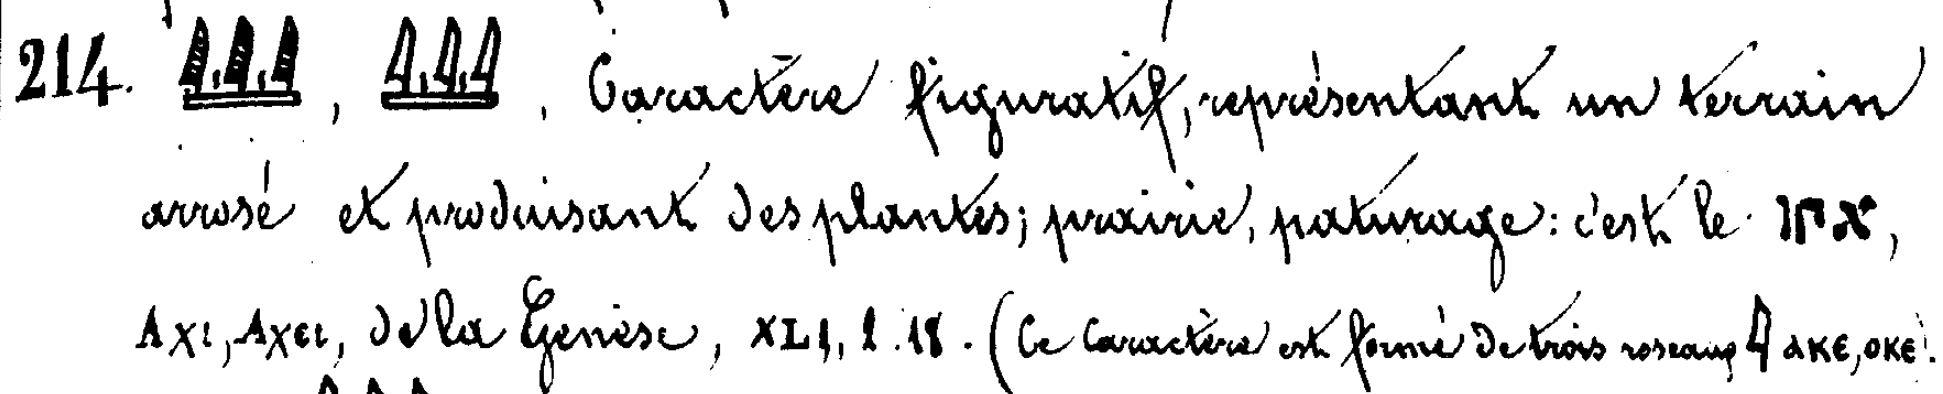 214. 𓇏, 𓇏. Caractère figuratif, représentant un terrain
arrosé et produisant des plantes; prairie, paturage: c'est le אחו,
Αχι, Αχει, de la Genèse, XLI, 2.18. (Ce Caractère est formé de trois roseaux 𓇋 ⲁⲕⲉ, ⲟⲕⲉ.